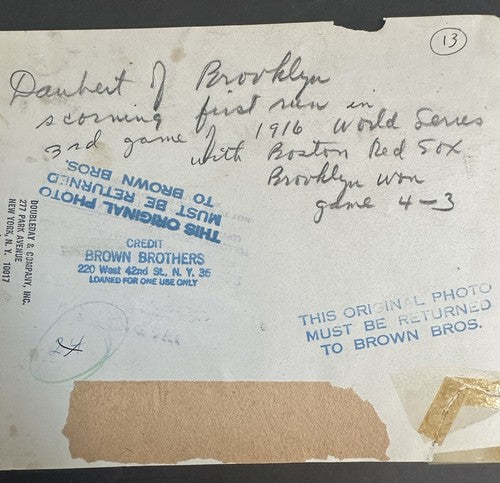 13
Daubert of Brooklyn
scorning first run in
3rd game of 1916 World Series
with Boston Red Sox
Brooklyn won
game 4-3
THIS ORIGINAL PHOTO
MUST BE RETURNED
TO BROWN BROS.
CREDIT
BROWN BROTHERS
220 West 42nd St., N. Y. 36
LOANED FOR ONE USE ONLY
DOUBLEDAY & COMPANY, INC.
277 PARK AVENUE
NEW YORK, N. Y. 10017
THIS ORIGINAL PHOTO
MUST BE RETURNED
TO BROWN BROS.